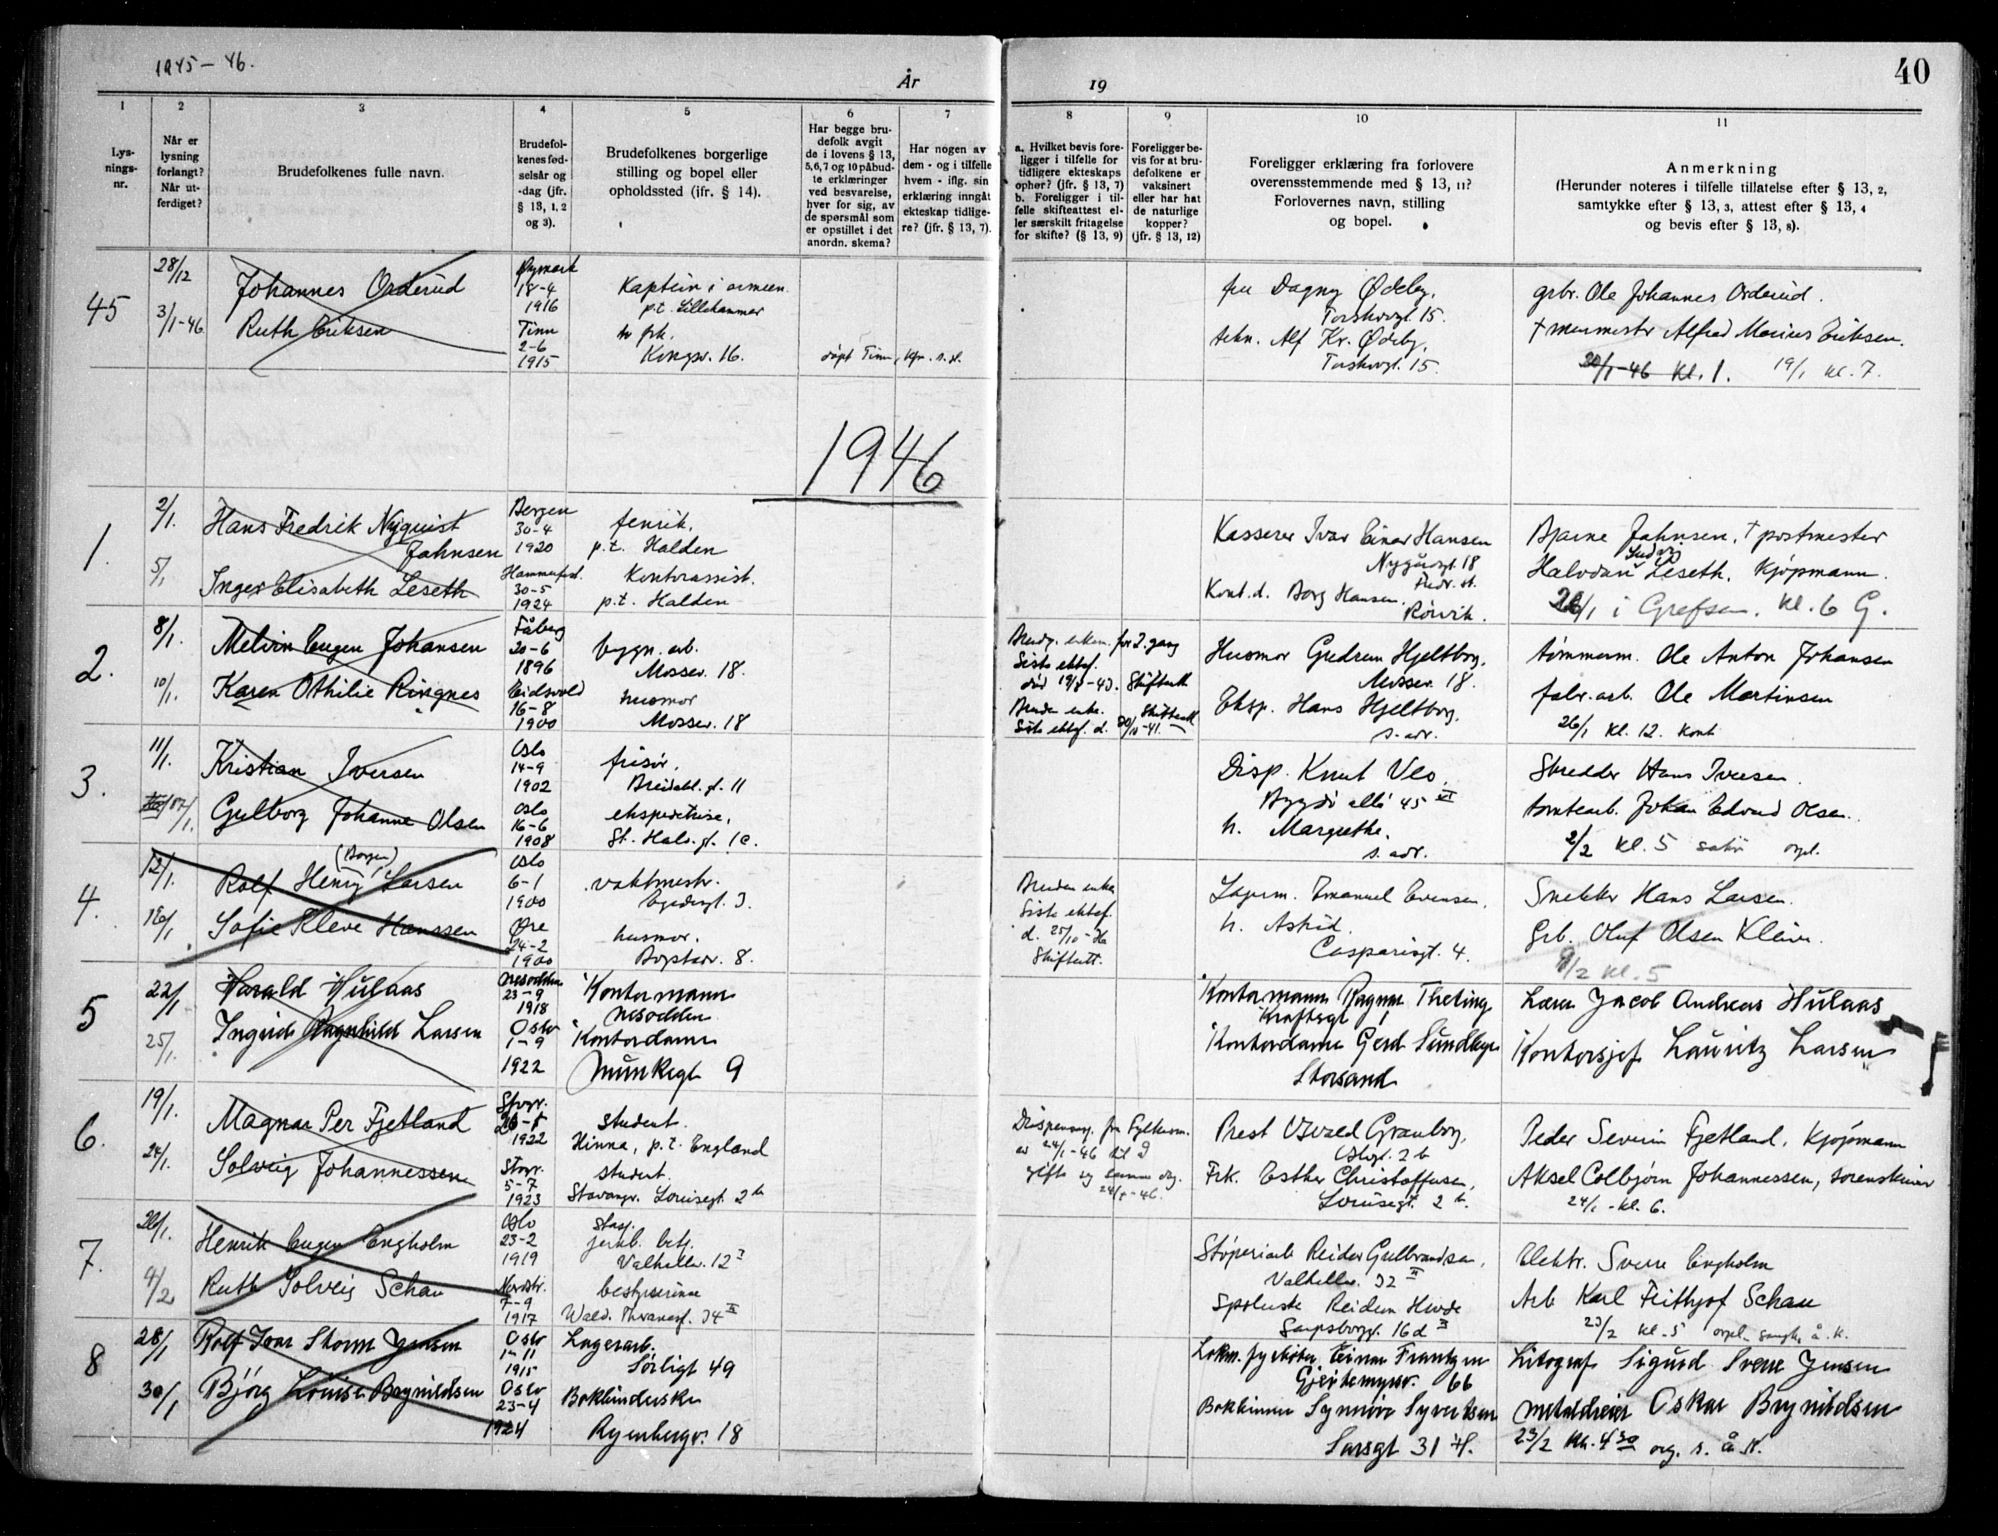 1945 – 46.
År
19
40
1
2
3
4
5
6
7
8
9
10
11
Lys-
nings-
nr.
Når er
lysning
forlangt?
Når ut-
ferdiget?
Brudefolkenes fulle navn.
Brudefol-
kenes fød-
selsår og
-dag (jfr.
§ 13, 1, 2
og 3).
Brudefolkenes borgerlige
stilling og bopel eller
opholdssted (ifr. § 14).
Har begge bru-
defolk avgit
de i lovens § 13,
5,6,7 og 10 påbud-
te erklæringer
ved besvarelse,
hver for sig, av
de spørsmål som
er opstillet i det
anordn. skema?
Har nogen av
dem - og i tilfelle
hvem - iflg. sin
erklæring inngåt
ekteskap tidlige-
re? (jfr. § 13, 7).
a. Hvilket bevis fore-
ligger i tilfelle for
tidligere ekteskaps
ophør? (jfr. § 13, 7)
b. Foreligger i til-
felle skifteattest el-
ler særskilt fritagelse
for skifte? (§ 13, 9)
Foreligger be-
vis for at bru-
defolkene er
vaksinert
eller har hat
de naturlige
kopper?
(jfr. § 13, 12)
Foreligger erklæring fra forlovere
overensstemmende med § 13, 11?
Forlovernes navn, stilling
og bopel.
Anmerkning
(Herunder noteres i tilfelle tillatelse efter § 13, 2,
samtykke efter § 13, 3, attest efter § 13, 4
og bevis efter § 13, 8).
45
28/12
3/1-46.
Johannes Orderud
Ruth Eriksen
Øymark
18-4
1916
Tinn
2-6
1915
Kaptein i armeen
p.t. Lillehammer
frk.
Kingsv. 16.
døpt Tinn,
fru Dagny Ødeby,
Torshovgt. 15.
tekn. Alf Kr. Ødeby,
Torshovgt. 15.
gbr. Ole Johannes Orderud.
† murmester Alfred Marius Eriksen.
20/1-46 kl. 1. 19/1 kl. 7.
1946
1.
2/1.
5/1
Hans Fredrik Nyquist
Jahnsen
Inger Elisabeth Leseth
Bergen
30-4
1920
Hammerfest.
30-5
1924
fenrik.
p.t. Halden
Kontorassist.
p.t. Halden
Kasserer Ivar Einar Hansen
Nygårdsgt. 18
Fredr. st.
Kont.d. Borg Hansen.
Rørvik.
Bjarne Jahnsen, † postmester
Halvdan Leseth, Kjøpmann.
26/1 i Grefsen. Kl. 6 G.
2.
8/1.
10/1.
Melvin Eugen Johansen
Karen Othilie Ringnes
Fåberg
20-6
1896
Eidsvold
16-8
1900
bygn. arb.
Mossev. 18.
husmor
Mossev. 18
Brudg. enkem. for 2. gang
Siste ektef.
død 19/8-43. Skifteatt
Bruden enke. Skifteatt
Siste ektef. d. 20/10-41.
Husmor Gudrun Hjeltborg.
Mossev. 18.
Eksp. Hans Hjeltborg.
s. adr.
tømmerm. Ole Anton Johansen
fabr. arb. Ole Martinsen
26/1 kl. 12. kont
3.
11/1.
17/1.
Kristian Iversen
Gulborg Johanne Olsen
Oslo
14-9
1902
Oslo
16-6
1908
frisør.
Breidabl. gt. 11
ekspeditrise,
St. Halv. gt. 1c.
Disp. Knut Veo.
Bygdø allé 45 VI
h. Margrethe.
s. adr.
Skredder Hans Iversen.
tomtearb. Johan Edvard Olsen.
2/2 kl. 5 orgel.
4.
12/1.
18/1.
(Borgen)
Rolf Henry Larsen
Sofie Kleve Hanssen
Oslo
6-1
1900
Øre
24-2
1900
vaktmestr.
Egedesgt. 3.
husmor.
Bogstadv. 8.
Bruden enke
Siste ektef.
d. 25/10-
Skifteatt.
Lagerm. Emanuel Evensen.
h. Astrid.
Casparisgt. 4.
Snekker Hans Larsen.
Grb. Oluf Olsen Kleive.
9/2 kl. 5
5
22/1
25/1.
Harald Hulaas
Ingrid Ragnhild Larsen
Nesodden
23-9
1918
Oslo
1-9
1922
Kontormann
Nesodden
Kontordame
Munkegt 9
Kontormann Ragnar Theting
Kraftsgt 1
Kontordame Gerd Sundbye
Storsand
Lærer Jacob Andreas Hulaas
Kontorsjef Lauritz Larsen
6.
19/1.
24/1.
Magnar Per Fjetland
Solveig Johannessen
Stvgr.
1922
Stvgr.
5-7
1923
student.
Hinna, p.t. England
student.
Stavangr. Louisegt. 2 b
Dispensasj. fra Fylkesm.
av 24/1-46 til å
gifte seg samme dag.
24/1-46.
Prest Osvald Granborg,
Frk. Esther Christoffersen,
Louisegt. 2 b.
Peder Severin Fjetland, Kjøpmann
Aksel Colbjørn Johannessen, sorenskriver
24/1 - kl. 6.
7.
26/1.
4/2
Henrik Eugen Engholm
Ruth Solveig Schau
Oslo
23-2
1919
Nordstr.
7-9
1917
stasj.
jernb. betj.
Valhallv. 12 I
bestyrerinne
Wald. Thranesgt. 34 II
Støperiarb Reidar Gulbrandsen,
Valhallv. 32 II
Reidun Hvide
Sarpsborggt. 16d II
Elektr. Sverre Engholm
Arb Karl Frithjof Schau
23/2 kl. 5 orgel
8
28/1
30/1
Rolf Ivar Storm Jensen
Bjørg Louise Brynildsen
Oslo
1-11
1915
Oslo
23-4
1924
Lagerarb.
Sørligt 49
Bokbinderske
Ryenbergv. 18
Lokm. fyrbøter Einar Frantzen
Gjeitemyrsv. 66
Bokbinder Synnøve Syvertsen
Sarsgt 31
Litograf Sigurd Sverre Jensen
Metaldreier Oskar Brynildsen
23/2 kl. 4 30 org. s. å. K.